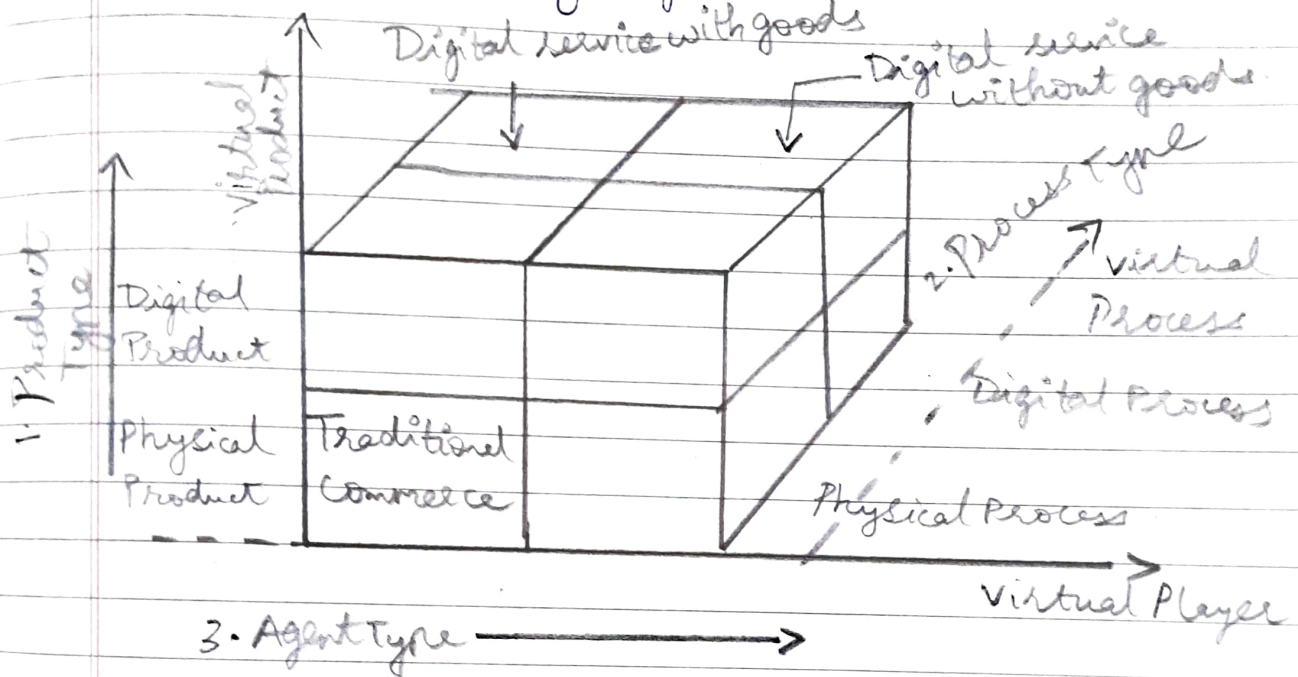 Digital service with goods
Digital service
without goods
Virtual
Product
1. Product
Type
Digital
Product
Physical
Product
Traditional
Commerce
2. Process Type
Virtual
Process
Digital Process
Physical Process
Virtual Player
3. Agent Type